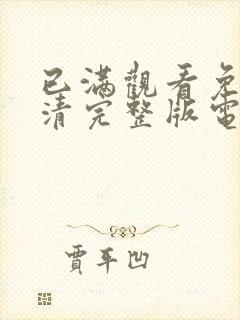 已滿觀看免
清完整版電
賈平凹